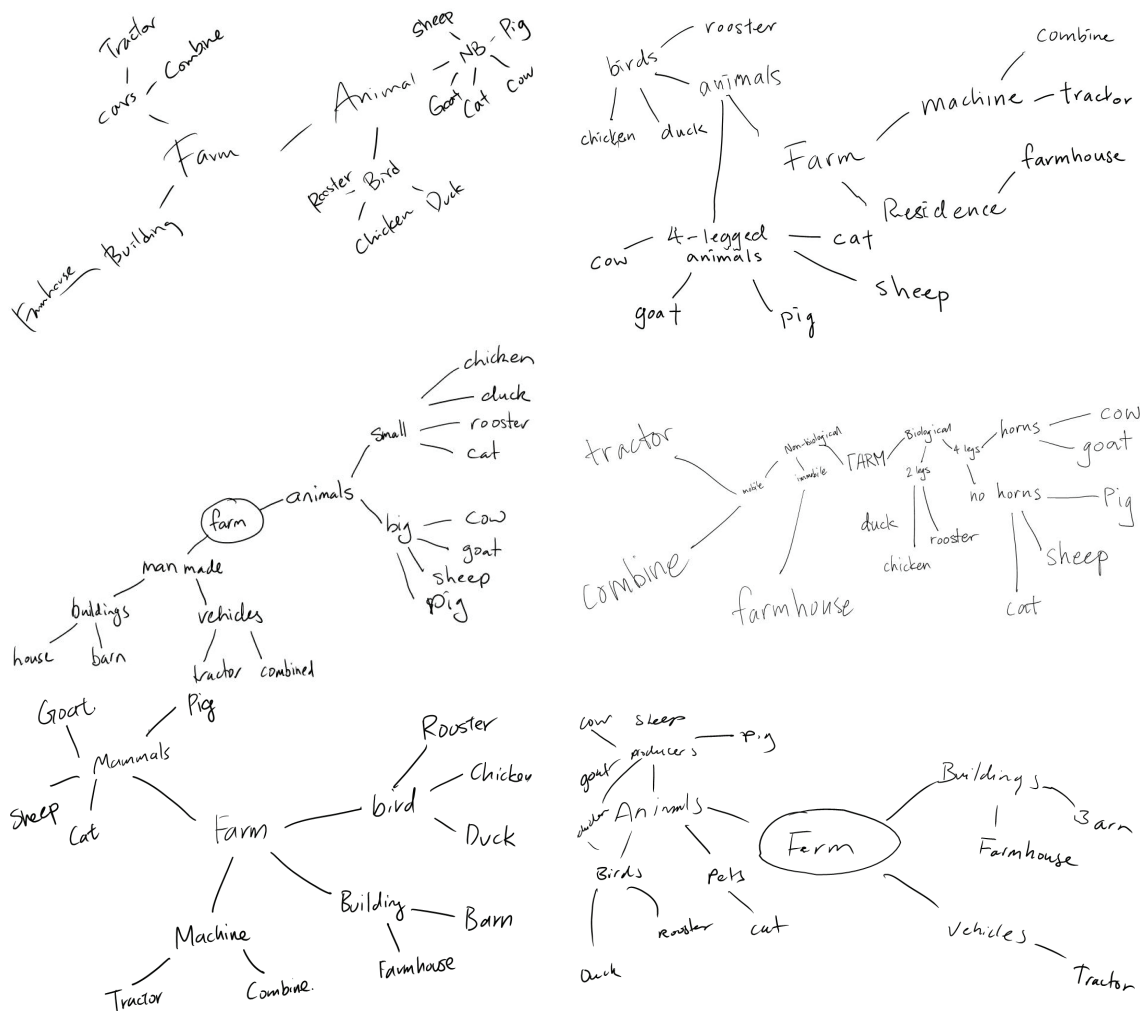 Tractor
Combine
cars
Farm
Building
Farmhouse
Animal
sheep
NB
Pig
Goat
Cat
Cow
Rooster
Bird
Chicken
Duck
birds
rooster
animals
chicken
duck
Farm
machine
combine
tractor
Residence
farmhouse
4-legged
animals
cow
cat
goat
pig
sheep
farm
animals
small
chicken
duck
rooster
cat
big
cow
goat
sheep
pig
man made
buildings
house
barn
vehicles
tractor
combined
FARM
Non-biological
mobile
immobile
tractor
combine
farmhouse
Biological
2 legs
duck
chicken
rooster
4 legs
horns
cow
goat
no horns
Pig
sheep
cat
Farm
Mammals
Goat
Pig
Sheep
Cat
bird
Rooster
Chicken
Duck
Building
Barn
Farmhouse
Machine
Tractor
Combine.
Farm
Animals
producers
cow
sheep
pig
goat
Birds
Duck
Rooster
Pets
cat
Buildings
Barn
Farmhouse
vehicles
Tractor